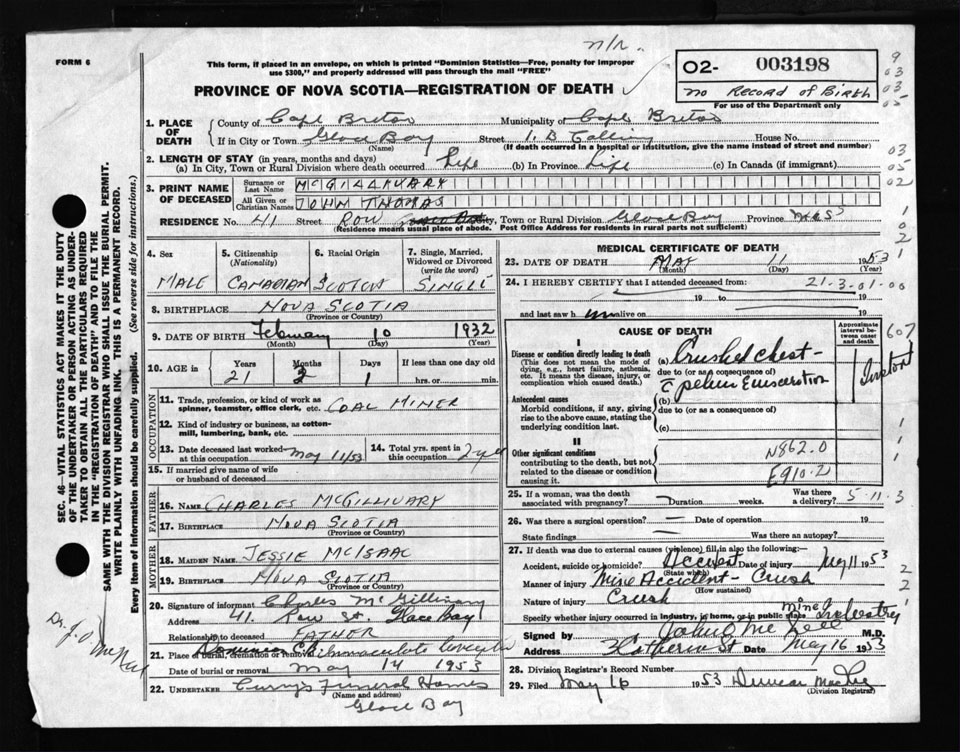 FORM 6
n/r.
This form, if placed in an envelope, on which is printed "Dominion Statistics—Free, penalty for improper use $300," and properly addressed will pass through the mail "FREE"
O2- 003198
no Record of Birth
For use of the Department only
PROVINCE OF NOVA SCOTIA—REGISTRATION OF DEATH
1. PLACE OF DEATH County of Cape Breton Municipality of Cape Breton
If in City or Town Glace Bay Street 1.B House No.
(Name) (If death occurred in a hospital or institution, give the name instead of street and number)
2. LENGTH OF STAY (in years, months and days)
(a) In City, Town or Rural Division where death occurred Life (b) In Province Life (c) In Canada (if immigrant)
3. PRINT NAME OF DECEASED Surname or Last Name McGILLIVARY
All Given or Christian Names JOHN THOMAS
RESIDENCE No. 41 Street ROW City, Town or Rural Division Glace Bay Province
(Residence means usual place of abode. Post Office Address for residents in rural parts not sufficient)
4. Sex MALE
5. Citizenship (Nationality) CANADIAN
6. Racial Origin SCOTCH
7. Single, Married, Widowed or Divorced (write the word) SINGLE
8. BIRTHPLACE NOVA SCOTIA
(Province or Country)
9. DATE OF BIRTH February 10 1932
(Month) (Day) (Year)
10. AGE in Years Months Days If less than one day old
21 3 1 hrs. or min.
OCCUPATION
11. Trade, profession, or kind of work as spinner, teamster, office clerk, etc. COAL MINER
12. Kind of industry or business, as cotton-mill, lumbering, bank, etc.
13. Date deceased last worked at this occupation May 11/53
14. Total yrs. spent in this occupation 2 yrs
15. If married give name of wife or husband of deceased
FATHER
16. NAME CHARLES McGILLIVARY
17. BIRTHPLACE NOVA SCOTIA
(Province or Country)
MOTHER
18. MAIDEN NAME JESSIE McISAAC
19. BIRTHPLACE NOVA SCOTIA
(Province or Country)
20. Signature of informant Charles McGillivary
Address 41 Row St. Glace Bay
Relationship to deceased FATHER
21. Place of burial, cremation or removal
Date of burial or removal May 14 1953
22. UNDERTAKER Curry's Funeral Homes
(Name and address)
Glace Bay
MEDICAL CERTIFICATE OF DEATH
23. DATE OF DEATH MAY 11 1953
(Month) (Day) (Year)
24. I HEREBY CERTIFY that I attended deceased from: 21-3-01-00
19 to 19
and last saw h alive on 19
CAUSE OF DEATH
Approximate interval between onset and death
I
Disease or condition directly leading to death (This does not mean the mode of dying, e.g., heart failure, asthenia, etc. It means the disease, injury, or complication which caused death.)
(a) Crushed Chest - Instant
due to (or as a consequence of)
Antecedent causes
Morbid conditions, if any, giving rise to the above cause, stating the underlying condition last.
(b)
due to (or as a consequence of)
(c)
II
Other significant conditions contributing to the death, but not related to the disease or condition causing it.
N862.0
E910.2
25. If a woman, was the death associated with pregnancy? Duration weeks. Was there a delivery? 5-11-3
26. Was there a surgical operation? Date of operation 19
State findings Was there an autopsy?
27. If death was due to external causes (violence) fill in also the following:—
Accident, suicide or homicide? Accident Date of injury May 11 1953
(State which)
Manner of injury Mine Accident - Crush
(How sustained)
Nature of injury Crush
Specify whether injury occurred in industry, in home, or in public place mine Industry
Signed by M.D.
Date May 16 1953
28. Division Registrar's Record Number
29. Filed May 16 1953 Duncan
(Division Registrar)
SEC. 46 - VITAL STATISTICS ACT MAKES IT THE DUTY OF THE UNDERTAKER OR PERSON ACTING AS UNDERTAKER TO OBTAIN ALL THE PARTICULARS REQUIRED IN THE "REGISTRATION OF DEATH" AND TO FILE THE SAME WITH THE DIVISION REGISTRAR WHO SHALL ISSUE THE BURIAL PERMIT.
WRITE PLAINLY WITH UNFADING INK. THIS IS A PERMANENT RECORD.
Every item of information should be carefully supplied. (See reverse side for instructions.)